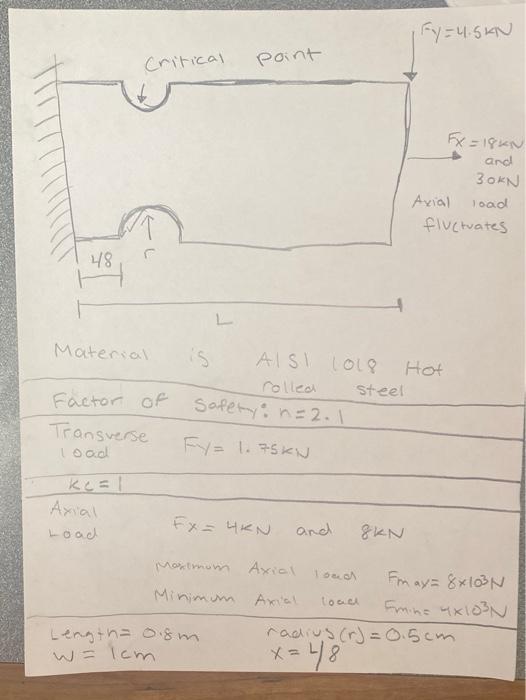 Fy=4.5KN
Critical point
Fx=18KN
and
30KN
Axial load
fluctuates
r
L/8
L
Material is AISI 1018 Hot
rolled steel
Factor of Safety: n=2.1
Transverse
load Fy= 1.75KN
kc=1
Axial
Load Fx= 4KN and 8KN
Maximum Axial load Fmax= 8x10³N
Minimum Axial load Fmin= 4x10³N
Length= 0.8m radius(r)=0.5cm
w= 1cm x=L/8